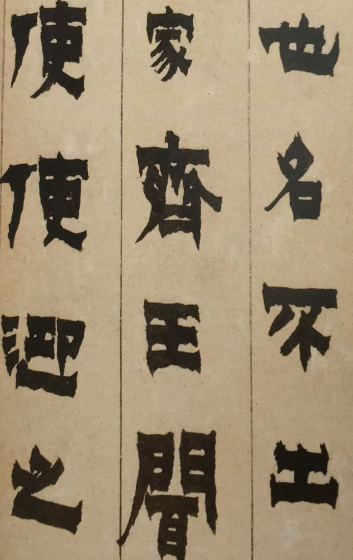 也名不出
家齊王聞
使使迎之